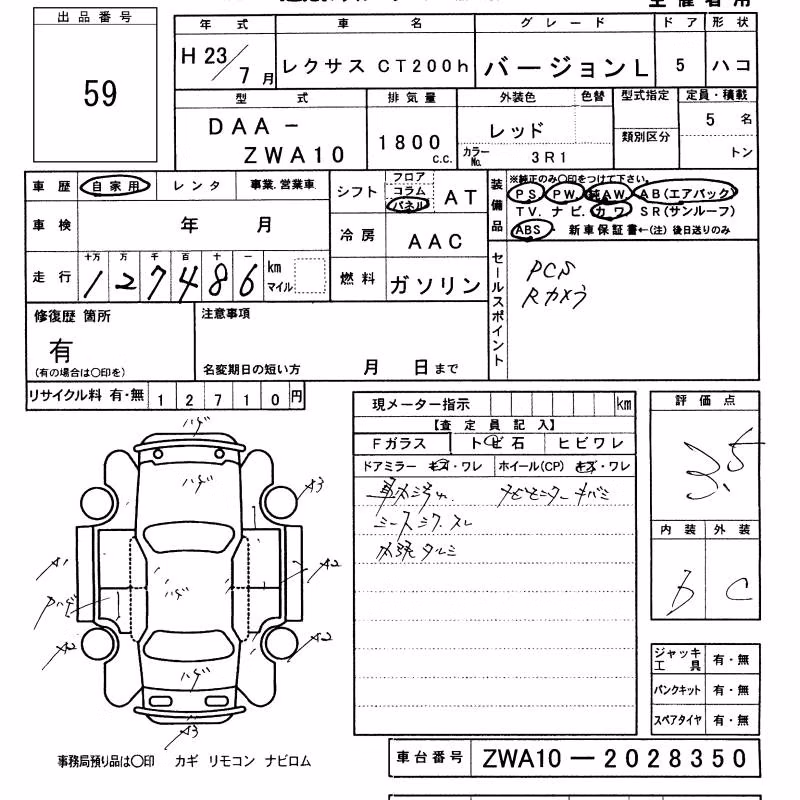 出品番号
59
年式 車名 グレード ドア 形状
H23/7月 レクサス CT200h バージョンL 5 ハコ
型式 排気量 外装色 色替 型式指定 定員・積載
DAA-ZWA10 1800c.c. レッド 類別区分 5名
カラーNo. 3R1 トン
車歴 自家用 レンタ 事業.営業車
シフト フロア コラム パネル AT
装備品 ※純正のみ〇印をつけて下さい。
PS PW 純AW AB(エアバック)
TV. ナビ. カワ SR(サンルーフ)
ABS 新車保証書←(注)後日送りのみ
車検 年 月
冷房 AAC
走行 十万 万 千 百 十 一
127486 km マイル
燃料 ガソリン
セールスポイント
PCS
Rカメラ
修復歴 箇所
有
(有の場合は〇印を)
注意事項
名変期日の短い方 月 日まで
リサイクル料 有・無 12710円
現メーター指示 km
【査定員記入】
Fガラス トビ石 ヒビワレ
ドアミラー キズ・ワレ ホイール(CP) キズ・ワレ
シートシワ.スレ
評価点
3.5
内装 外装
b C
A3
A1
A2
A2
A2
A3
ジャッキ工具 有・無
パンクキット 有・無
スペアタイヤ 有・無
事務局預り品は〇印 カギ リモコン ナビロム
車台番号 ZWA10-2028350